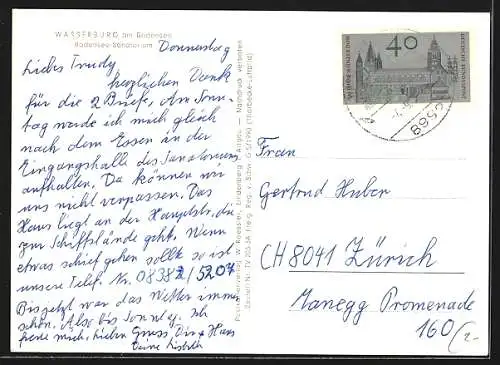 WASSERBURG am Bodensee
Bodensee-Sanatorium
Donnerstag
Liebes Trudy
herzlichen Dank
für die 2 Brief. Am Sonn-
tag werde ich mich gleich
nach dem Essen in der
Eingangshalle des Sanatoriums
aufhalten. Da können wir
uns nicht verpassen. Das
Haus liegt an der Hauptstr. die
zum Schiffslände geht. Wenn
etwas schief gehen sollte so ist
unsere Telef. Nr. 08382/5204
Bis jetzt war das Wetter immer
schön. Also bis Sonntag. Ich
freue mich, lieben Gruss, Dir + Hans
Deine
Nachdruck verboten
40
8998
Frau
Gertrud Huber
CH 8041 Zürich
Manegg Promenade
160